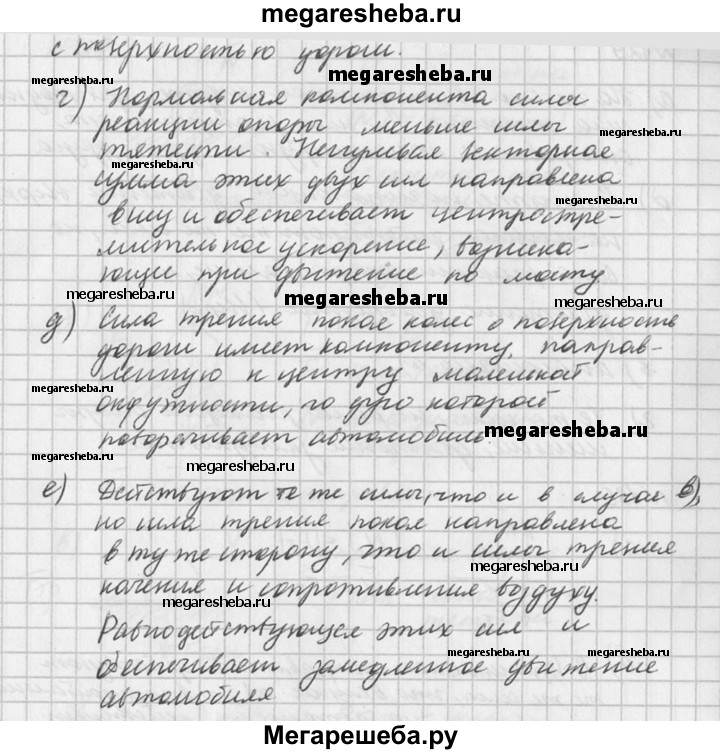 megaresheba.ru
с поверхностью дороги.
megaresheba.ru
megaresheba.ru
г) Нормальная компонента силы
megaresheba.ru
реакции опоры меньше силы
тяжести. Ненулевая векторная
megaresheba.ru
сумма этих двух сил направлена
megaresheba.ru
вниз и обеспечивает центростре-
мительное ускорение, возника-
ющее при движение по мосту
megaresheba.ru
megaresheba.ru
megaresheba.ru
д) Сила трения покоя колес о поверхность
дороги имеет компоненту, направ-
ленную к центру маленькой
megaresheba.ru
окружности, по дуге которой
поворачивает автомобиль.
megaresheba.ru
megaresheba.ru
megaresheba.ru
е) Действуют те же силы, что и в случае в),
но сила трения покоя направлена
в ту же сторону, что и силы трения
megaresheba.ru
качения и сопротивления воздуху.
megaresheba.ru
Равнодействующая этих сил и
megaresheba.ru
обеспечивает замедленное движение
megaresheba.ru
автомобиля
Мегарешеба.ру